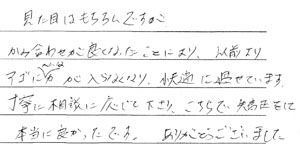 見た目はもちろんですが
かみ合わせが良くなったことにより、以前より
アゴに力が入らなくなり、快適に過せています。
丁寧に相談に応じて下さり、こちらで矯正をして
本当に良かったです。ありがとうございました